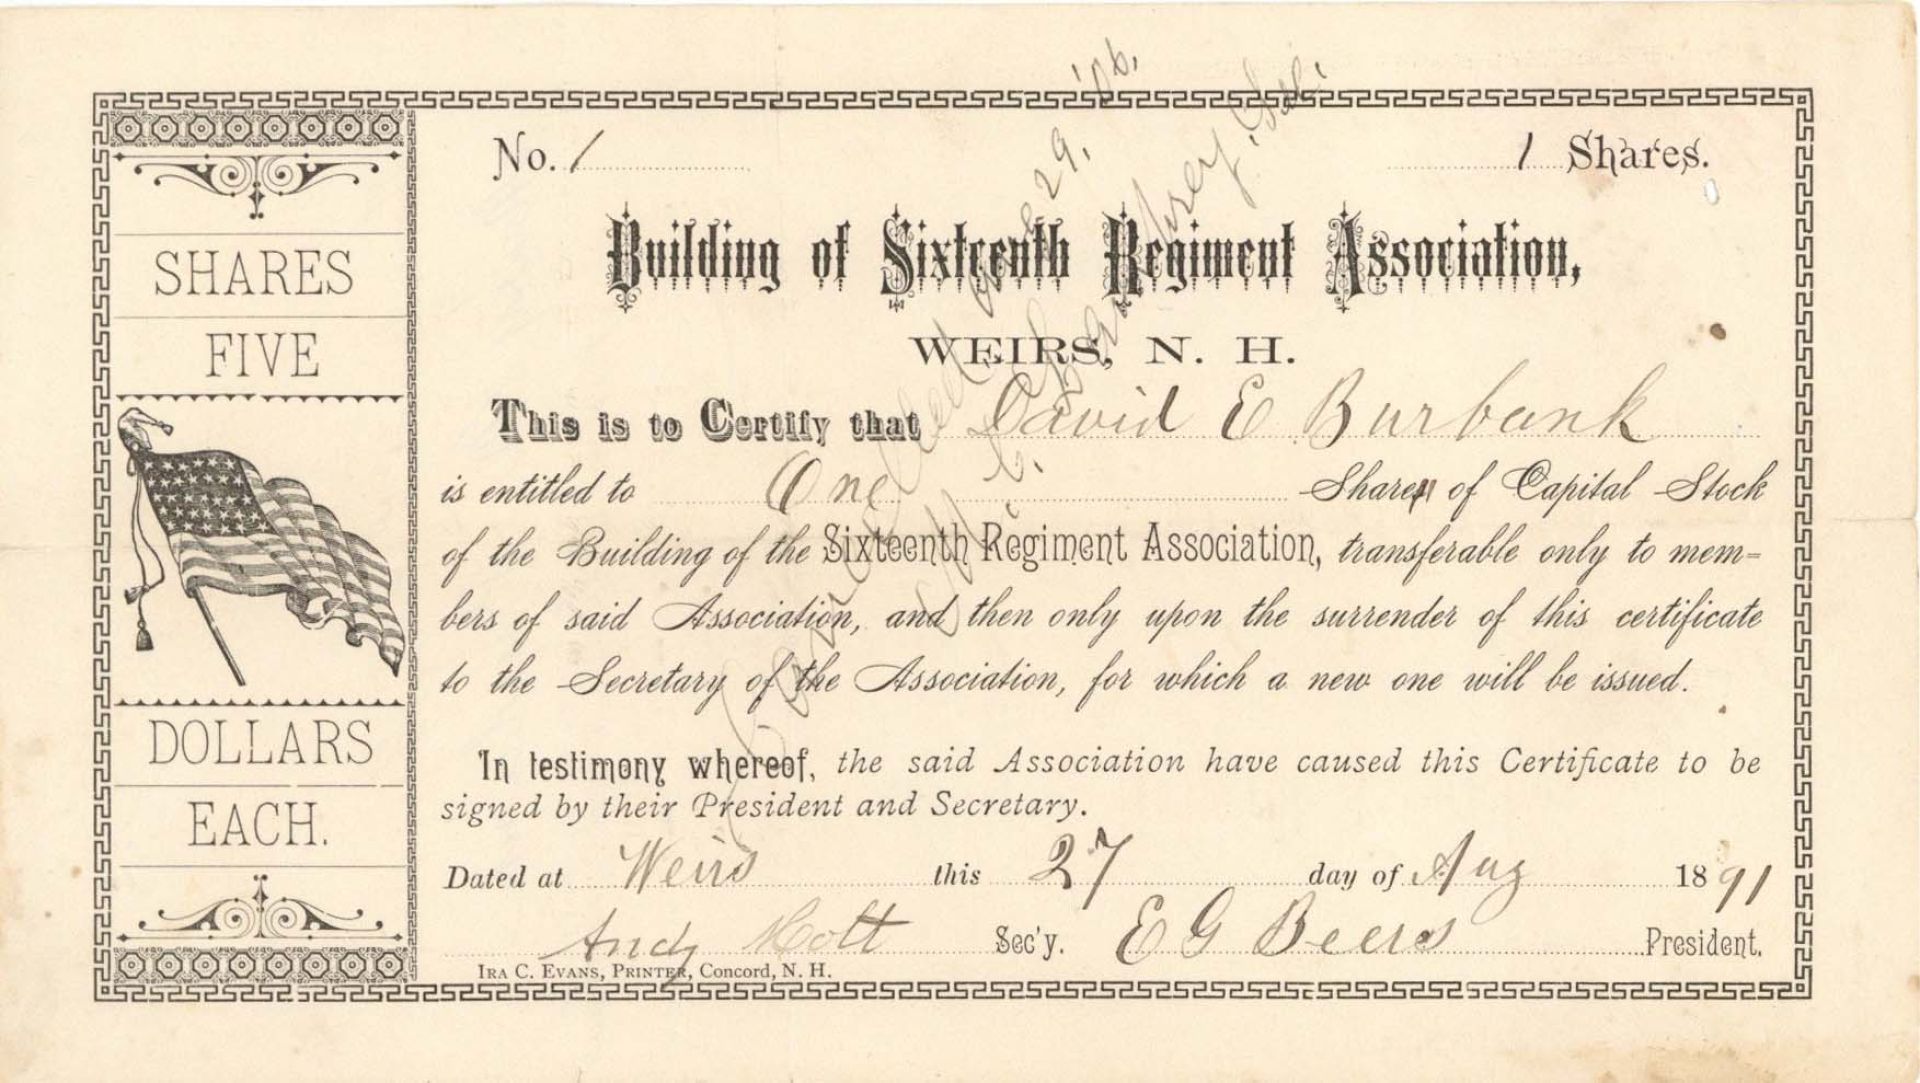 No. 1
1 Shares.
Building of Sixteenth Regiment Association,
WEIRS, N. H.
This is to Certify that David E Burbank
is entitled to One Share of Capital Stock
of the Building of the Sixteenth Regiment Association, transferable only to mem-
bers of said Association, and then only upon the surrender of this certificate
to the Secretary of the Association, for which a new one will be issued.
In testimony whereof, the said Association have caused this Certificate to be
signed by their President and Secretary.
Dated at Weirs this 27 day of Aug 1891
Andy Holt Sec'y. E G Beers President.
IRA C. EVANS, PRINTER, Concord, N. H.
SHARES
FIVE
DOLLARS
EACH.
Cancelled 29, '06.